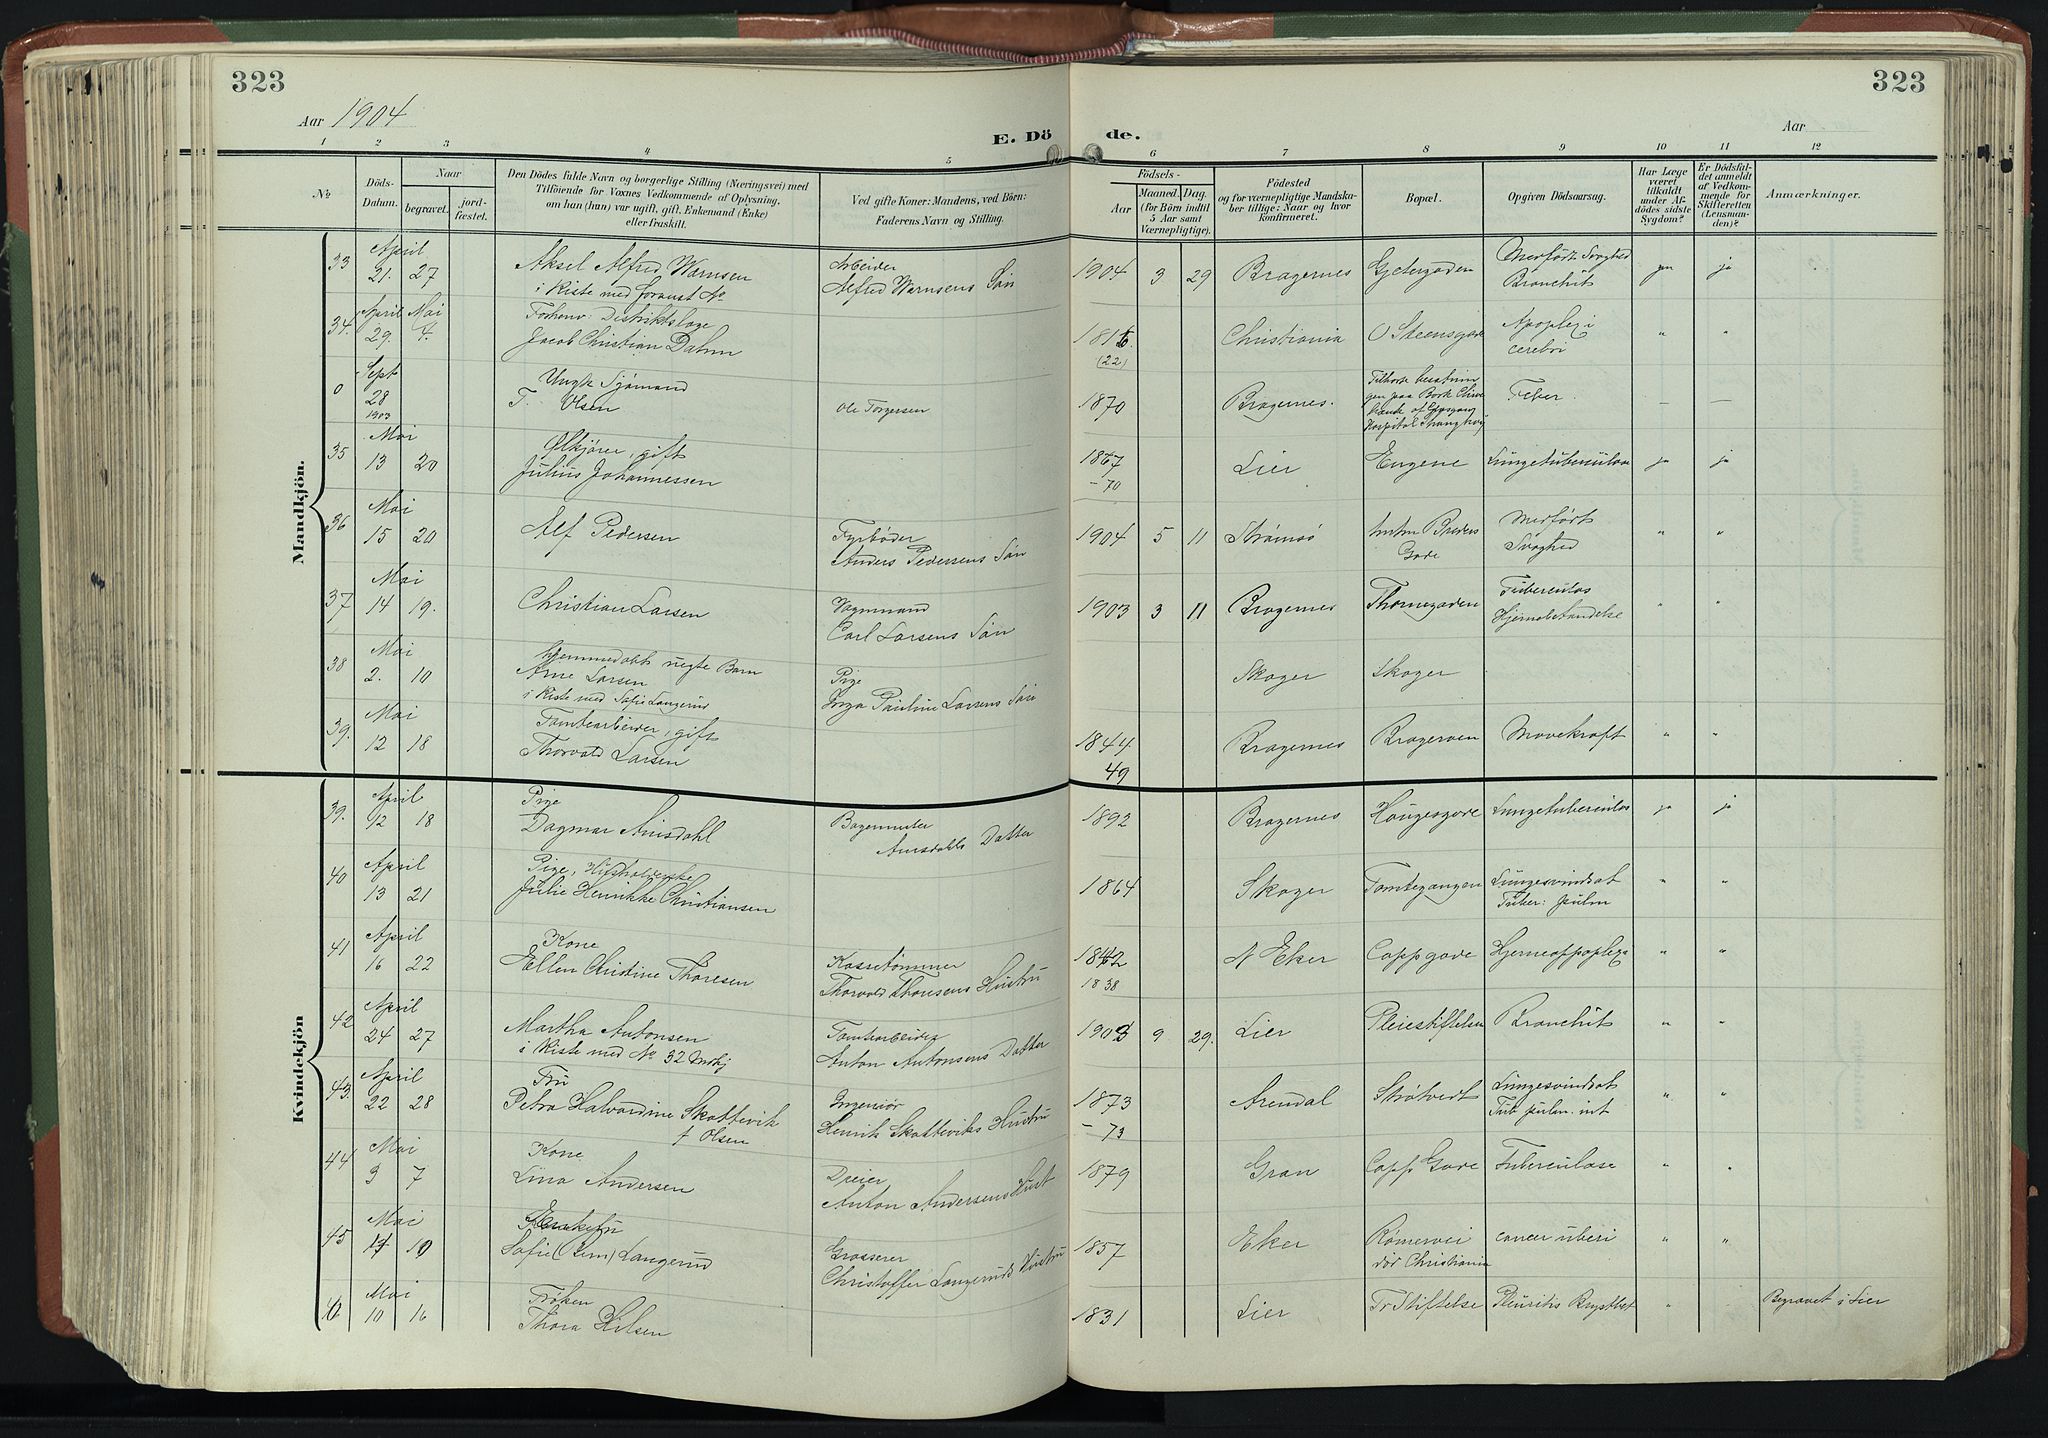 323
323
Aar 1904
E. Dö de.
Aar
1 2 3 4 5 6 7 8 9 10 11 12
No
Döds-Datum.
Naar
begravet.
jord-fæstet.
Den Dödes fulde Navn og borgerlige Stilling (Næringsvei) med
Tilföiende for Voxnes Vedkommende af Oplysning,
om han (hun) var ugift, gift, Enkemand (Enke)
eller fraskilt.
Ved gifte Koner: Mandens, ved Börn:
Faderens Navn og Stilling.
Födsels-
Aar
Maaned. Dag.
(for Börn indtil
5 Aar samt
Værnepligtige).
Födested
og for værnepligtige Mandska-
ber tillige: Naar og hvor
konfirmeret.
Bopæl.
Opgiven Dödsaarsag.
Har Læge
været
tilkaldt
under Af-
dödes sidste
Sygdom?
Er Dödsfal-
det anmeldt
af Vedkom-
mende for
Skifteretten
(Lensman-
den)?
Anmærkninger.
Mandkjön.
33 April 21. 27
Aksel Alfred Warnsen
i Kiste med foranst No
Arbeider
Alfred Warnsens Søn
1904 3 29 Bragernes Gjetergaden Medfødt Svaghed
Bronchit ja ja
34. April 29. Mai 4.
Forhenv. Distriktslæge
Jacob Christian Dahm
1816. (22) Christiania O Steensgade Apoplexi
cerebri " "
0 Sept 28 1903
Ungk Sjømand
T. Olsen
Ole Torgersen
1870 Bragernes.
Tilhørte besætnin
gen paa Bark
Feber. — —
35 Mai 13 20
Ølkjører, gift
Julius Johannessen
1867 - 70 Lier Eugene Lungetuberculose ja ja
36 Mai 15 20
Alf Pedersen
Fyrbøder
Anders Pedersens Søn
1904 5 11 Strømsø
Gade
Medfødt
Svaghed " "
37 Mai 14 19.
Christian Larsen
Vognmand
Carl Larsens Søn
1903 3 11 Bragernes Thornegaden Tuberculos
Hjernebetændelse " "
38 Mai 2. 10
hjemmedøbt uegte Barn
Arne Larsen
i Kiste med Sofie Langerud
Pige
Inga Pauline Larsens Søn
Skoger Skoger
39. Mai 12 18
Tomtearbeider, gift
Thorvald Larsen
1844. 49 Bragernes Brageroen Mavekræft " "
Kvindekjön
39. April 12 18
Pige
Dagmar Amsdahl
Bogermester
Amsdahls Datter
1892 Bragernes Haugesgade Lungetuberculos ja ja
40 April 13 21
Pige, Husholderske
Julie Henrikke Christiansen
1864 Skoger Tomtegangen Lungesvindsot
Tuber: pulm " "
41 April 16 22
Kone
Ellen Christine Thoresen
Kassetømmer
Thorvald Thoresens Hustru
1842 1838 N Eker Cappgade Hjerneapoplexi " "
42 April 24 27
Martha Antonsen
i Kiste med No 32 Mdkj
Tomtearbeider
Anton Antonsens Datter
1903 9 29. Lier Pleiestiftelsen Bronchit " "
43. April 22 28
Fru
Petra Halvardine Skottevik
f Olsen
Ingeniør
Henrik Skotteviks Hustru
1873 - 73 Arendal Strøtvedt Lungesvindsot
Tub pulm. int " "
44 Mai 3 7
Kone
Lina Andersen
Dreier
Anton Andersens Hust
1879 Gran Capp Gade Tuberculose " "
45 Mai 10
Enkefru
Sofie Langerud
Grosserer
Christoffer Langeruds Hustru
1857 Eker Rømervei
v/dr Christiania cancer uberi " "
46 Mai 10 16
Frøken
Thora Hilsen
1831 Lier Tr Stiftelse Pleuritis Brystbet " Begravet i Lier